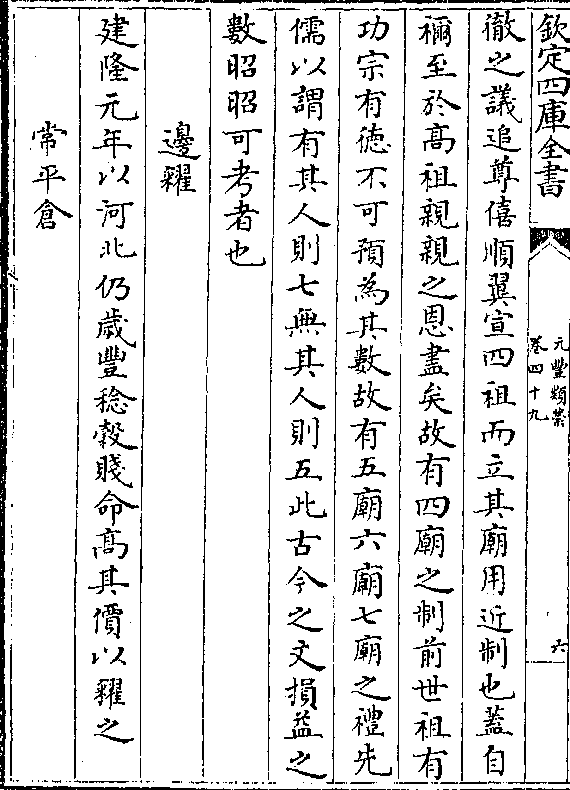 欽定四庫全書
元豐類藁
卷四十九
六
徹之議追尊僖順翼宣四祖而立其廟用近制也蓋自
禰至於髙祖親親之恩盡矣故有四廟之制前世祖有
功宗有徳不可預為其數故有五廟六廟七廟之禮先
儒以謂有其人則七無其人則五此古今之文損益之
數昭昭可考者也
邊糴
建隆元年以河北仍歳豐稔榖賤命髙其價以糴之
常平倉